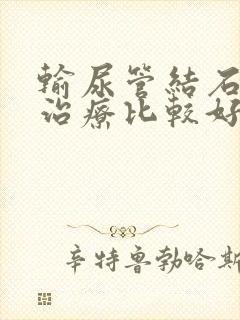 輸尿管結石
治療比較好
辛特魯勃哈斯